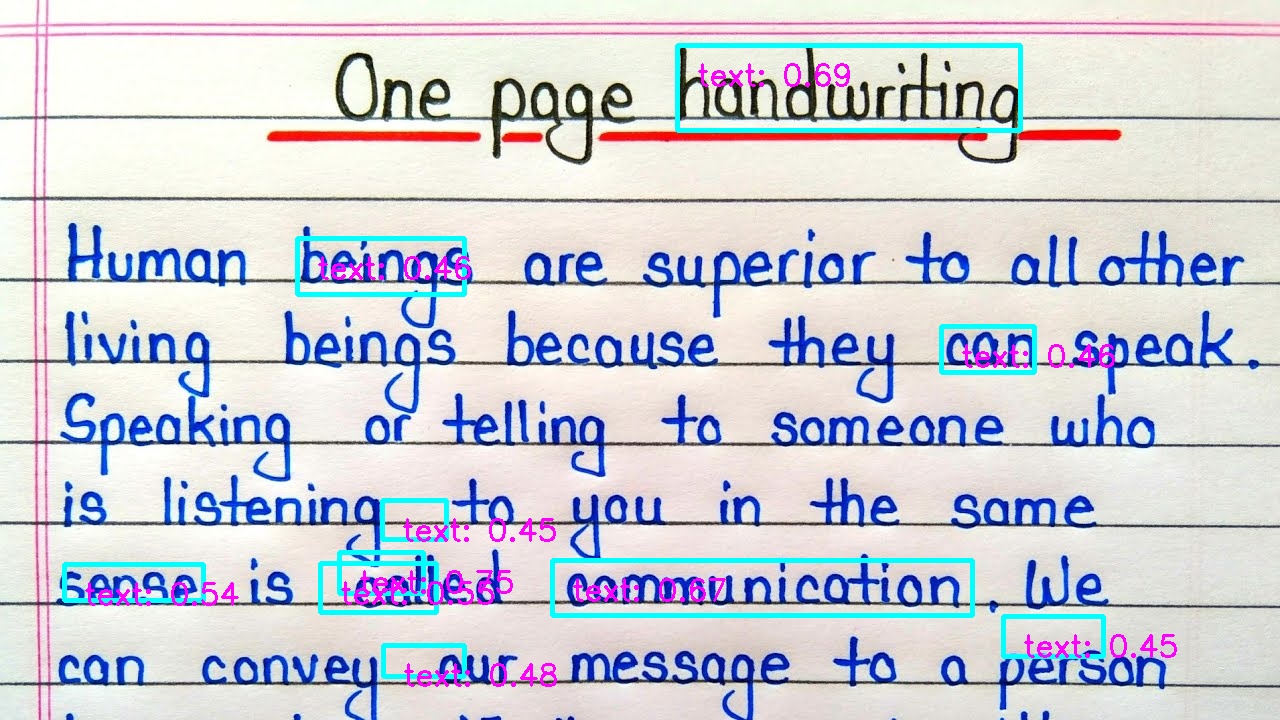 One page handwriting
Human beings are superior to all other
living beings because they can speak.
Speaking or telling to someone who
is listening to you in the same
sense is called communication. We
can convey our message to a person
text: 0.69
text: 0.46
text: 0.46
text: 0.45
text: 0.75
text: 0.54
text: 0.56
text: 0.67
text: 0.45
text: 0.48